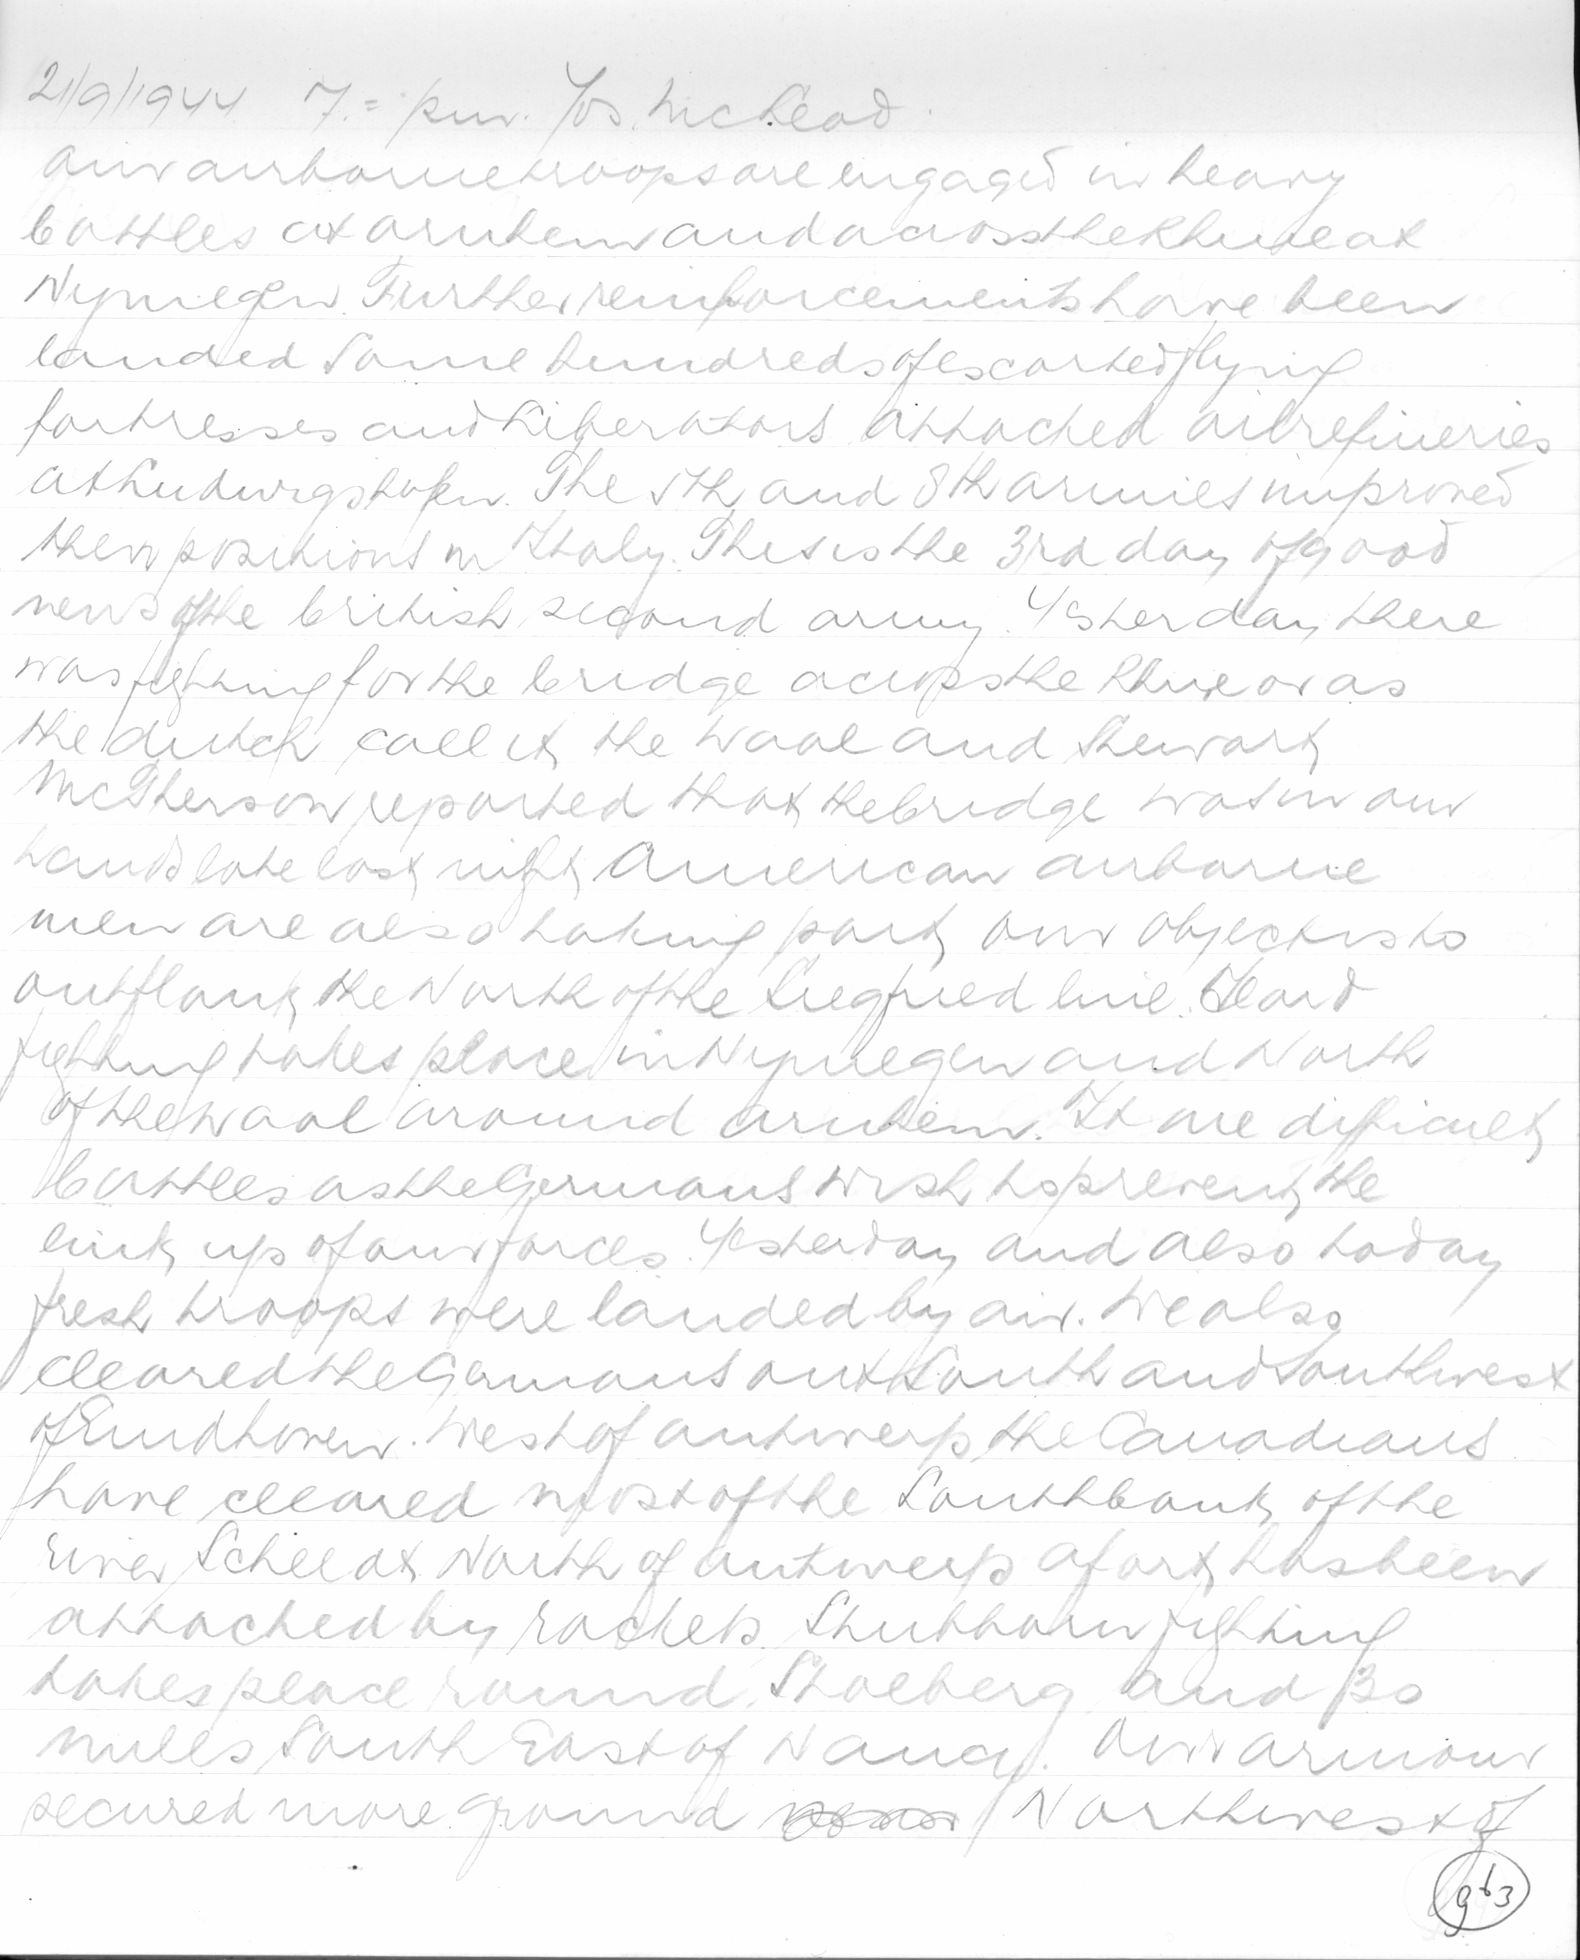 21/9/1944 7.= p.m. Jos. McLeod.
Our airborne troops are engaged in heavy
battles at Arnhem and across the Rhine at
Nymegen. Further reinforcements have been
landed Some hundreds of escorted flying
fortresses and Liberators attacked oil refineries
at Ludwigshafen. The 5th and 8th armies improved
their positions in Italy. This is the 3rd day of good
news of the british second army. Yesterday there
was fighting for the bridge across the Rhine or as
the dutch call it, the Waal and Stewart
McPherson reported that the bridge was in our
hands late last night, American airborne
men are also taking part, our object is to
outflank the North of the Siegfried line. Hard
fighting takes place in Nymegen and North
of the Waal around Arnhem. It are difficult
battles as the Germans wish to prevent the
link up of our forces. Yesterday and also today
fresh troops were landed by air. We also
cleared the Germans out South and Southwest
of Eindhoven. West of Antwerp, the Canadians
have cleared most of the Southbank of the
river Scheldt. North of Antwerp a fort has been
attacked by rockets. Stubborn fighting
takes place round Stolberg and 30
miles South East of Nancy. Our armour
secured more ground Northwest of
963